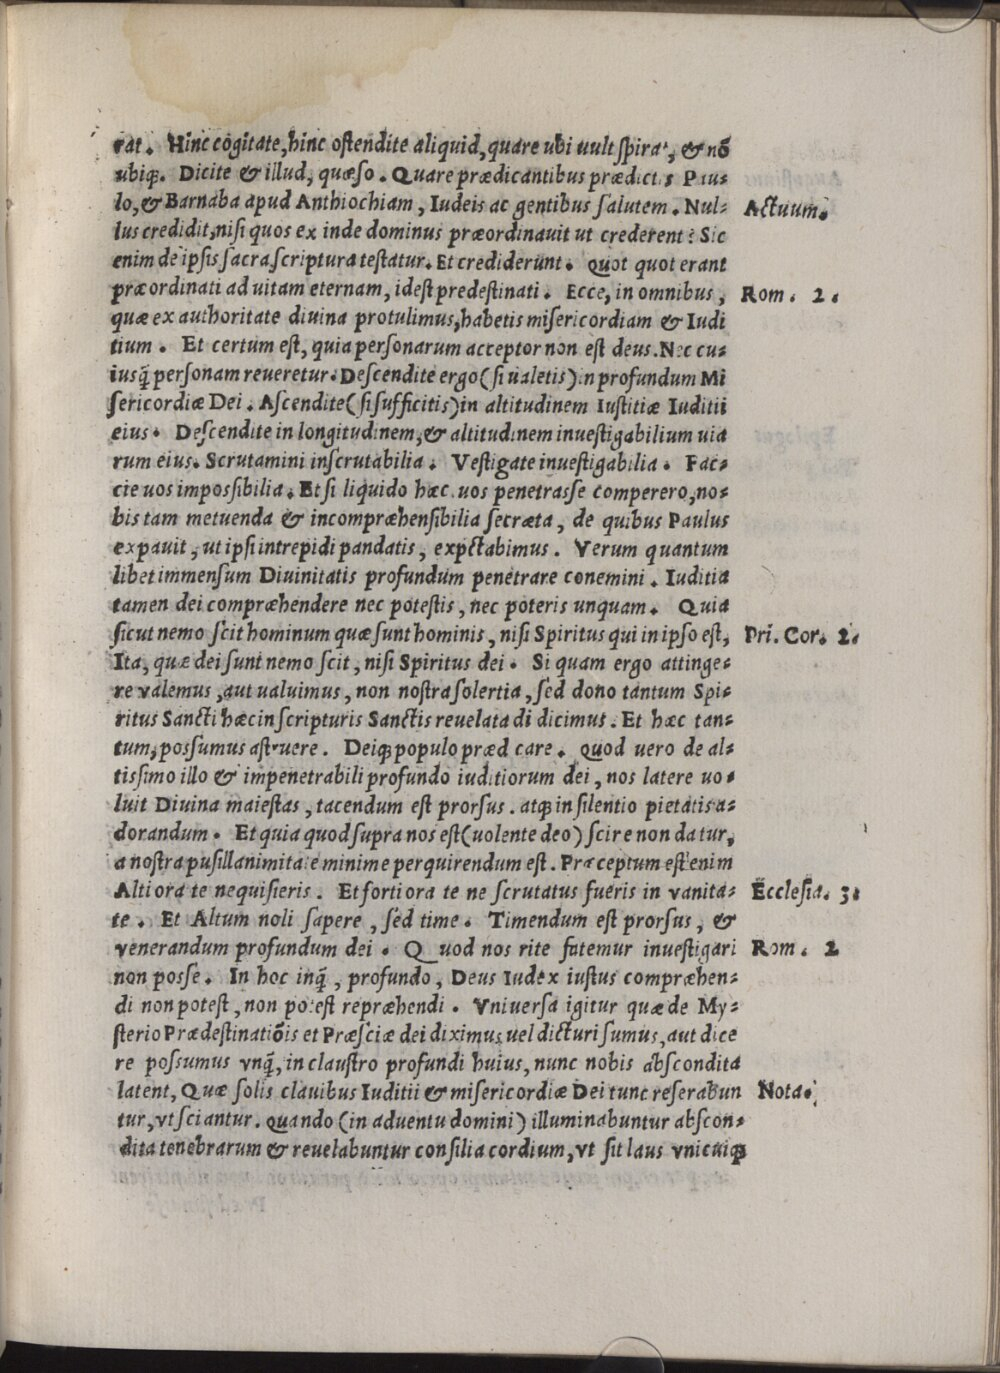 rat. Hinc cōgitate, hinc ostendite aliquid, quare ubi uult spirat, & nō
ubiqꝫ. Dicite & illud, quæso. Quare prædicantibus prædictis Pau-
lo, & Barnaba apud Anthiochiam, Iudeis ac gentibus salutem. Nul- Actuum.
lus credidit, nisi quos ex inde dominus præordinauit ut crederent? Sic
enim de ipsis sacra scriptura testatur. Et crediderunt. Quot quot erant
præordinati ad uitam eternam, idest predestinati. Ecce, in omnibus, Rom. 2.
quæ ex authoritate diuina protulimus, habetis misericordiam & Iudi
tium. Et certum est, quia personarum acceptor non est deus. Nec cu-
iusq̃ personam reueretur. Descendite ergo (si ualetis) in profundum Mi
sericordiæ Dei. Ascendite (si sufficitis) in altitudinem Iustitiæ Iuditii
eius. Descendite in longitudinem, & altitudinem inuestigabilium uia
rum eius. Scrutamini inscrutabilia. Vestigate inuestigabilia. Fac-
cie uos impossibilia. Et si liquido hæc uos penetrasse comperero, no-
bis tam metuenda & incompræhensibilia secræta, de quibus Paulus
expauit, ut ipsi intrepidi pandatis, expctabimus. Verum quantum
libet immensum Diuinitatis profundum penetrare conemini. Iuditia
tamen dei compræhendere nec potestis, nec poteris unquam. Quia
sicut nemo scit hominum quæ sunt hominis, nisi Spiritus qui in ipso est, Pri. Cor. 2.
Ita, quæ dei sunt nemo scit, nisi Spiritus dei. Si quam ergo attinge-
re valemus, aut ualuimus, non nostra solertia, sed dono tantum Spi-
ritus Sancti hæc in scripturis Sanctis reuelata di dicimus. Et hæc tan-
tum, possumus astruere. Deiqꝫ populo præd care. Quod uero de al-
tissimo illo & impenetrabili profundo iuditiorum dei, nos latere uo-
luit Diuina maiestas, tacendum est prorsus. atqꝫ in silentio pietatis a-
dorandum. Et quia quod supra nos est (uolente deo) scire non datur,
a nostra pusillanimitate minime perquirendum est. Præceptum est enim
Altiora te nequisieris. Et fortiora te ne scrutatus fueris in vanita- Ecclesia. 3.
te. Et Altum noli sapere, sed time. Timendum est prorsus, &
venerandum profundum dei. Quod nos rite fatemur inuestigari Rom. 2
non posse. In hoc inq̃, profundo, Deus Iudex iustus compræhen-
di non potest, non potest repræhendi. Vniuersa igitur quæ de My-
sterio Prædestinatiōis et Præsciæ dei diximus uel dicturi sumus, aut dice
re possumus vnq̃, in claustro profundi huius, nunc nobis abscondita
latent, Quæ solis clauibus Iuditii & misericordiæ Dei tunc reserabun Nota.
tur, vt sciantur. quando (in aduentu domini) illuminabuntur abscon-
dita tenebrarum & reuelabuntur consilia cordium, vt sit laus vnicuiqꝫ